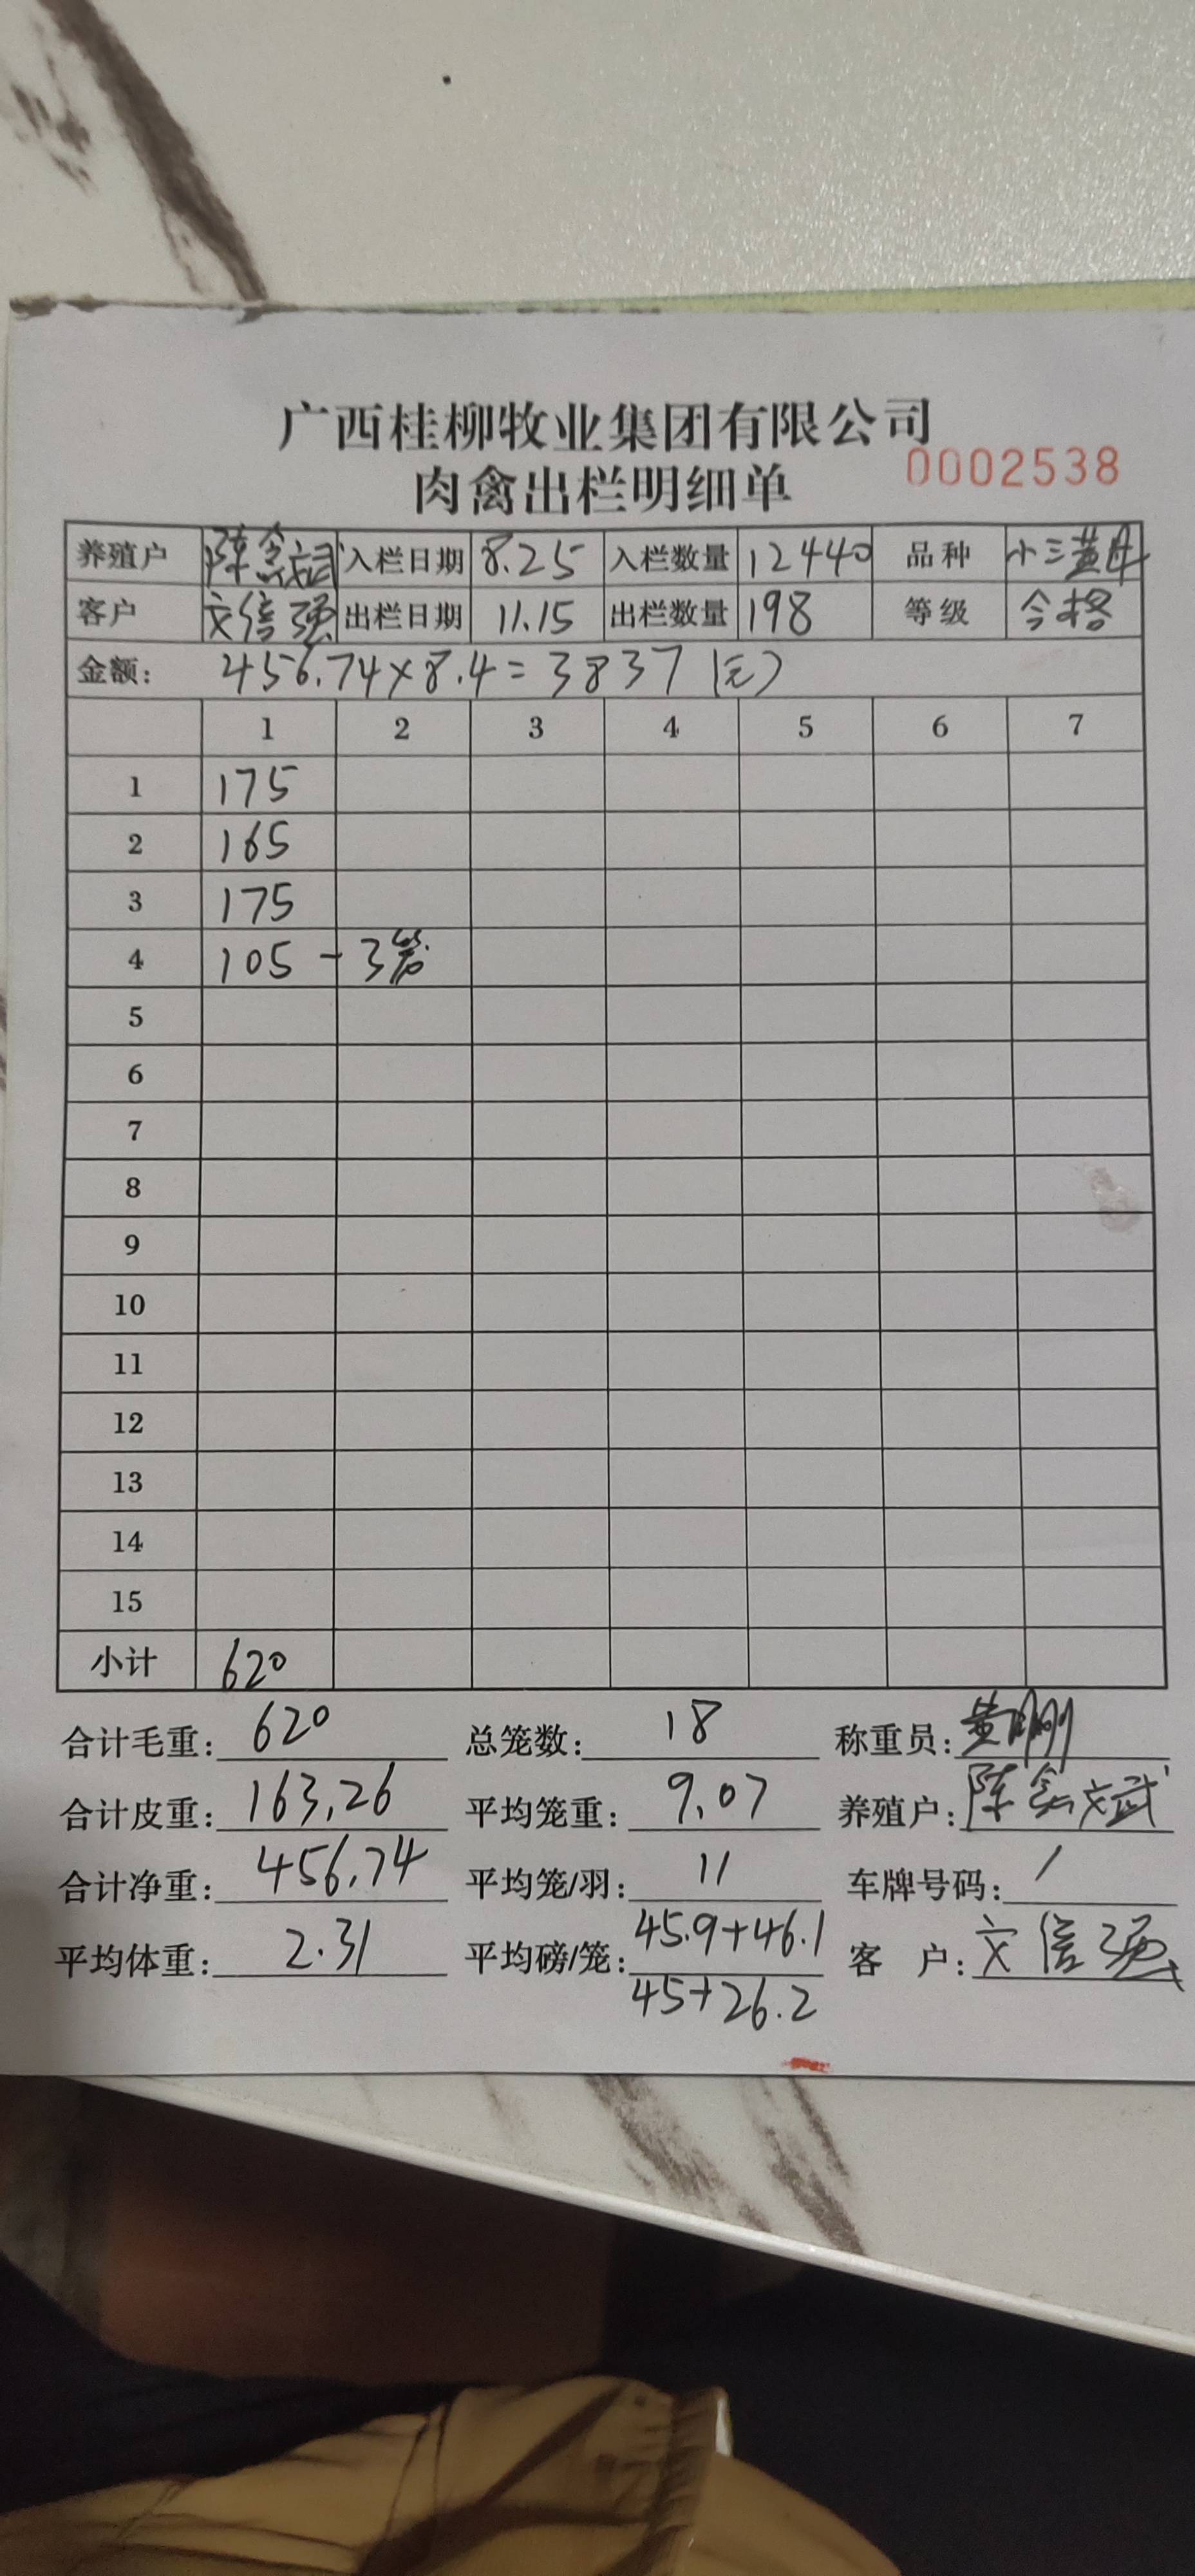 广西桂柳牧业集团有限公司
肉禽出栏明细单
0002538
养殖户 陈鑫斌 入栏日期 8.25 入栏数量 12440 品种 小三黄母
客户 文信强 出栏日期 11.15 出栏数量 198 等级 合格
金额: 456.74×8.4=3837(元)
1 2 3 4 5 6 7
1 175
2 165
3 175
4 105 - 3笼
5
6
7
8
9
10
11
12
13
14
15
小计 620
合计毛重: 620 总笼数: 18 称重员: 黄刚
合计皮重: 163.26 平均笼重: 9.07 养殖户: 陈鑫斌
合计净重: 456.74 平均笼/羽: 11 车牌号码: /
平均体重: 2.31 平均磅/笼: 45.9+46.1 客 户: 文信强
45+26.2